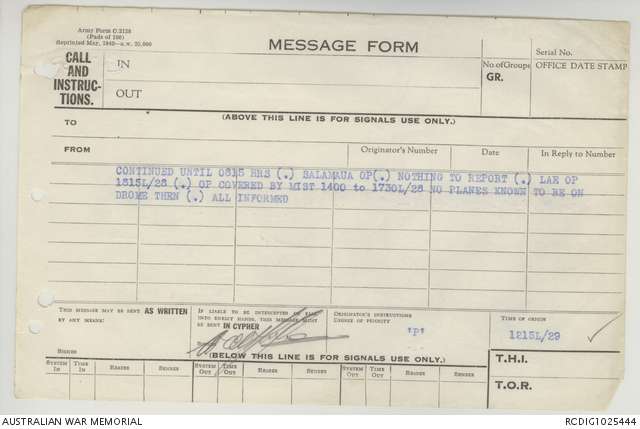 Army Form C.2128
(Pads of 100)
MESSAGE FORM
Serial No.
CALL
AND
INSTRUC-
TIONS.
IN
No of Groups
GR.
OFFICE DATE STAMP
OUT
(ABOVE THIS LINE IS FOR SIGNALS USE ONLY.)
TO
FROM
Originator's Number
Date
In Reply to Number
CONTINUED UNTIL 0815 HRS (.) SALAMAUA OP(.) NOTHING TO REPORT (.) LAE OP
1815L/28 (.) OP COVERED BY MIST 1400 to 1730L/28 NO PLANES KNOWN TO BE ON
DROME THEN (.) ALL INFORMED
THIS MESSAGE MAY BE SENT AS WRITTEN
BY ANY MEANS:
SIGNED
IF LIABLE TO BE INTERCEPTED OR FALL
INTO ENEMY HANDS, THIS MESSAGE MUST
BE SENT IN CYPHER
ORIGINATOR'S INSTRUCTIONS
DEGREE OF PRIORITY
'P'
TIME OF ORIGIN
1215L/29
(BELOW THIS LINE IS FOR SIGNALS USE ONLY.)
T.H.I.
T.O.R.
SYSTEM IN
TIME IN
READER
SENDER
SYSTEM OUT
TIME OUT
READER
SENDER
SYSTEM OUT
TIME OUT
READER
SENDER
AUSTRALIAN WAR MEMORIAL
RCDIG1025444